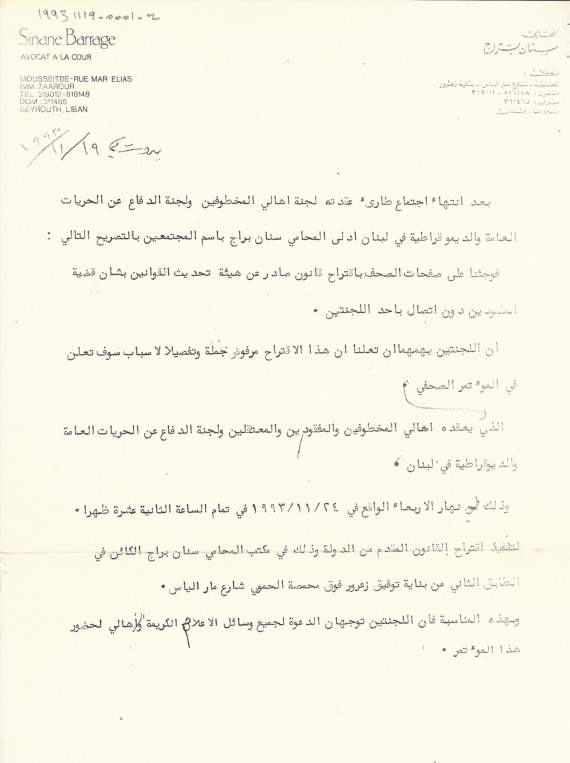 1993 1119-0001-2
Sinane Barrage
AVOCAT A LA COUR
MOUSSEITBE-RUE MAR ELIAS
IMM. ZAAROUR
TEL: 319012-816148
DOM.: 311465
BEYROUTH, LIBAN
المحامي
سنان براج
مكتب :
مصيطبة - شارع مار الياس - بناية زعرور
تلفون : ٨١٦١٤٨ - ٣١٩٠١٢
منزل : ٣١١٤٦٥
بيروت - لبنان
بيروت في ١٩/١١/١٩٩٣
بعد انتهاء اجتماع طارىء عقدته لجنة اهالي المخطوفين ولجنة الدفاع عن الحريات
العامة والديموقراطية في لبنان ادلى المحامي سنان براج باسم المجتمعين بالتصريح التالي :
فوجئنا على صفحات الصحف باقتراح قانون صادر عن هيئة تحديث القوانين بشان قضية
المفقودين دون اتصال باحد اللجنتين .
ان اللجنتين يهمهما ان تعلنا ان هذا الاقتراح مرفوض جملة وتفصيلا لاسباب سوف تعلن
في الموءتمر الصحفي
الذي يعقده اهالي المخطوفين والمفقودين والمعتقلين ولجنة الدفاع عن الحريات العامة
والديوقراطية في لبنان .
وذلك نهار الاربعاء الواقع في ١٩٩٣/١١/٢٤ في تمام الساعة الثانية عشرة ظهرا .
اقتراح القانون المقدم من الدولة وذلك في مكتب المحامي سنان براج الكائن في
الطابق الثاني من بناية توفيق زعرور فوق محمصة الحموي شارع مار الياس .
وبهذه المناسبة فان اللجنتين توجهان الدعوة لجميع وسائل الاعلام الكريمة والاهالي لحضور
هذا الموءتمر .